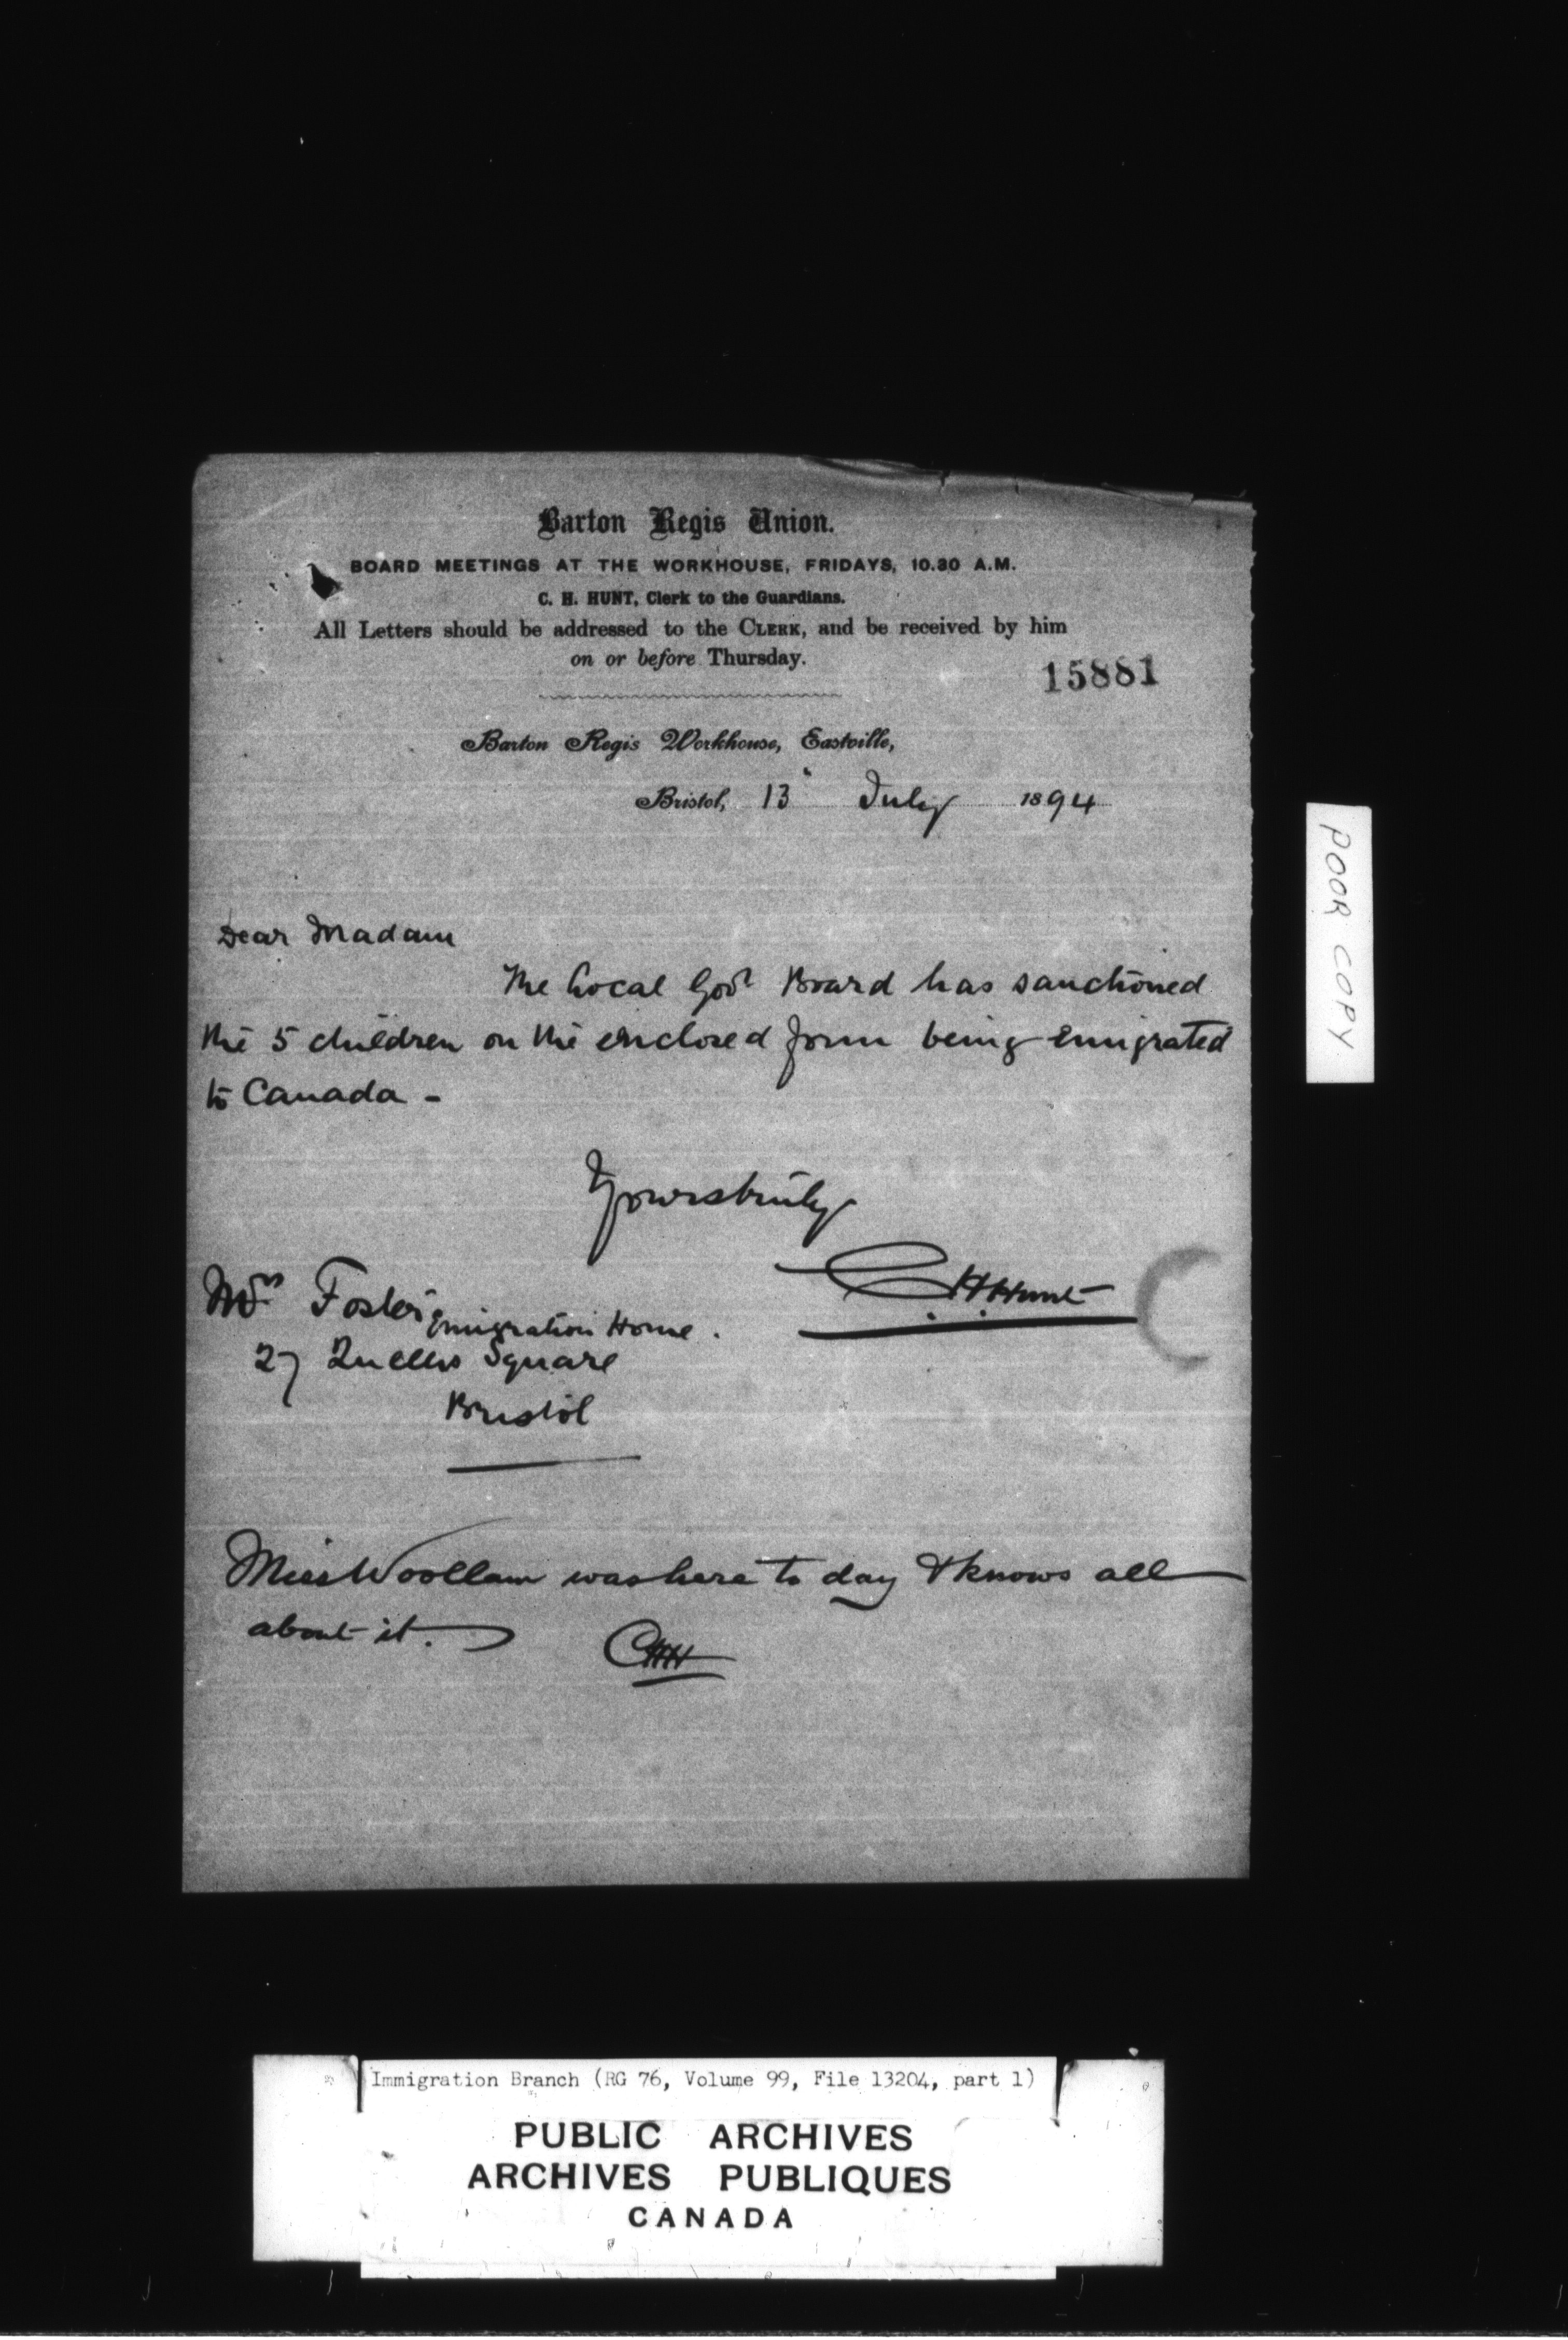 Barton Regis Union.
BOARD MEETINGS AT THE WORKHOUSE, FRIDAYS, 10.30 A.M.
C. H. HUNT, Clerk to the Guardians.
All Letters should be addressed to the CLERK, and be received by him
on or before Thursday.
15881
Barton Regis Workhouse, Eastville,
Bristol, 13 July 1894
Dear Madam
The Local Govt Board has sanctioned
the 5 children on the enclosed form being emigrated
to Canada -
Yours truly
CHHunt
Mrs Foster
Emigration Home.
27 Queens Square
Bristol
Miss Woollam was here to day & knows all
about it.
CHH
POOR COPY
Immigration Branch (RG 76, Volume 99, File 13204, part 1)
PUBLIC ARCHIVES
ARCHIVES PUBLIQUES
CANADA